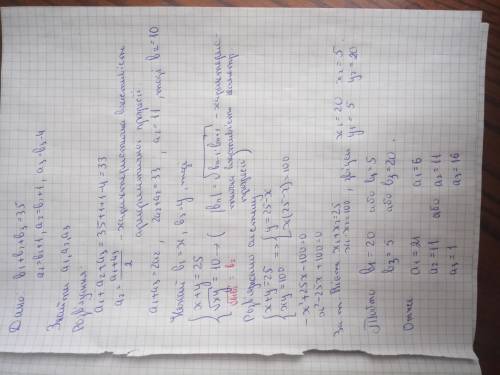 Дано b₁+b₂+b₃=35
a₁=b₁+1, a₂=b₂+1, a₃=b₃-4
Знайти a₁, a₂, a₃
Розв'язання
a₁+a₂+a₃=35+1+1-4=33
a₂=(a₁+a₃)/2 - характеристична властивість арифметичної прогресії
a₁+a₃=2a₂, 2a₂+a₂=33, a₂=11, тоді b₂=10
Нехай b₁=x, b₃=y, тоді
{x+y=25
{√xy=10 → (|bₙ|=√bₙ₋₁·bₙ₊₁ - характеристична властивість геометр прогресії)
√b₁b₃=b₂
Розв'яжемо систему
{x+y=25 => {y=25-x
{xy=100 {x(25-x)=100
-x²+25x-100=0
x²-25x+100=0
За т Вієта x₁+x₂=25 x₁·x₂=100, звідси x₁=20 x₂=5
y₁=5 y₂=20
Тобто b₁=20 або b₁=5
b₃=5 або b₃=20.
Отже a₁=21 a₁=6
a₂=11 або a₂=11
a₃=1 a₃=16